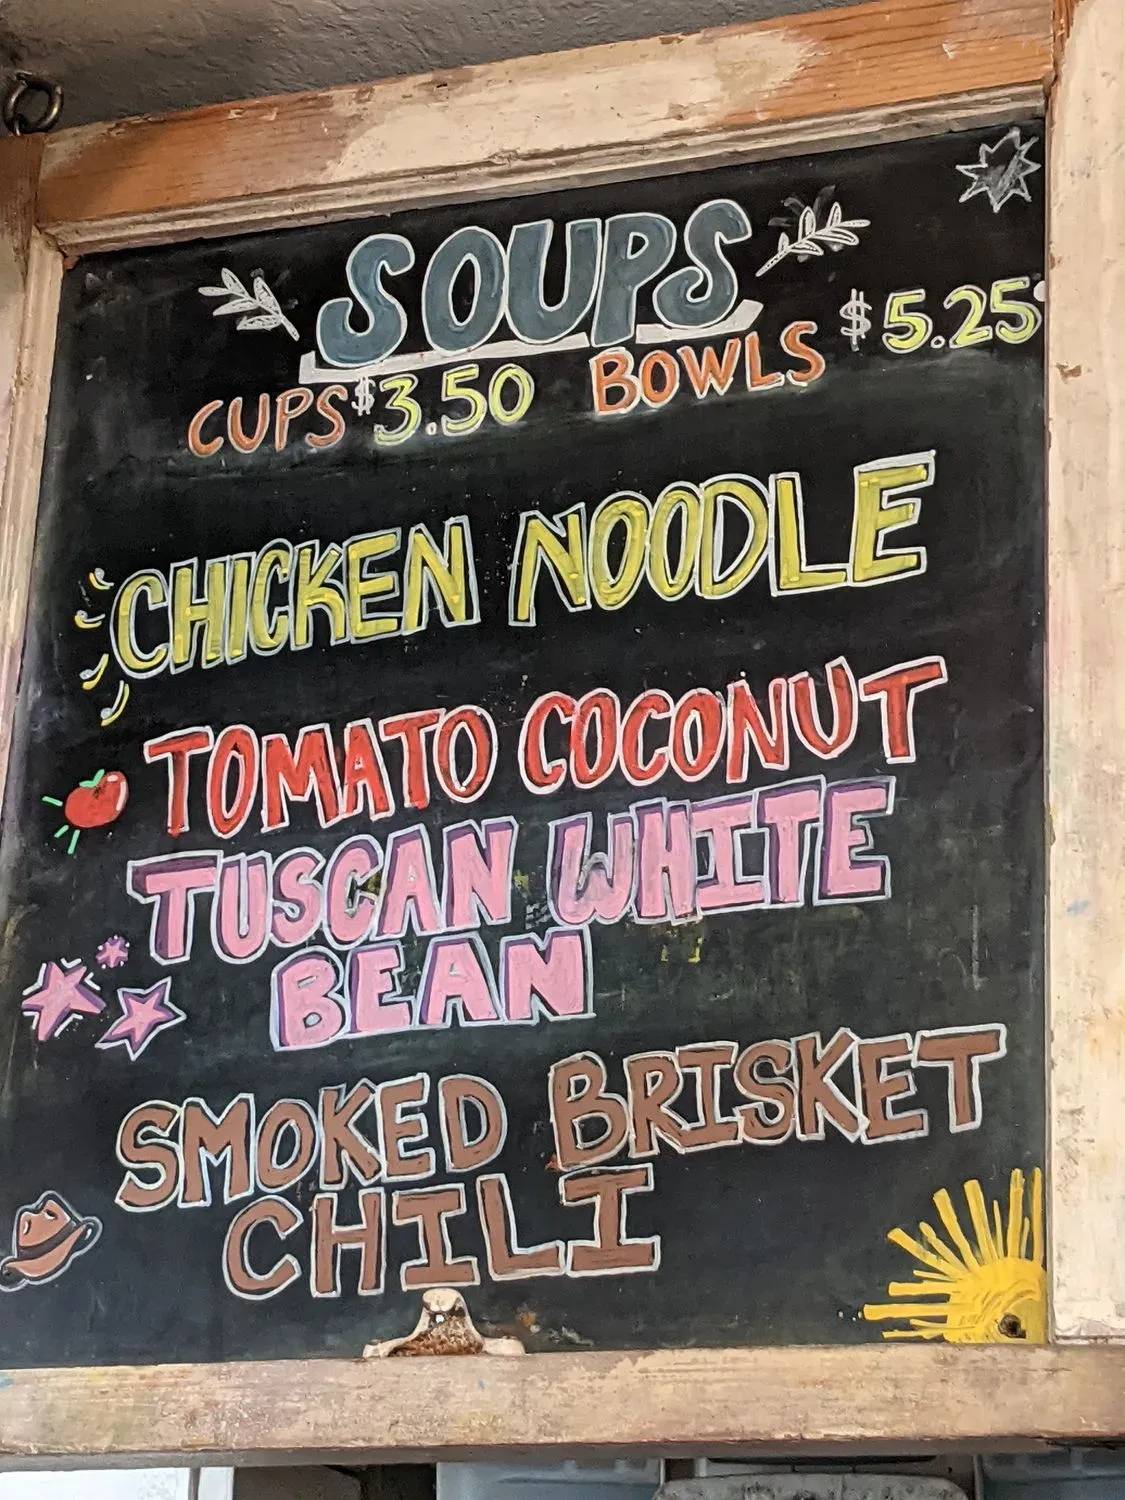 SOUPS
CUPS $3.50 BOWLS $5.25
CHICKEN NOODLE
TOMATO COCONUT
TUSCAN WHITE
BEAN
SMOKED BRISKET
CHILI